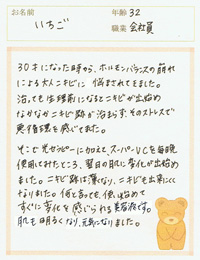 お名前 いちご
年齢 32
職業 会社員
30才になった時から、ホルモンバランスの崩れ
による大人ニキビに悩まされてきました。
治っても生理前になるとニキビが出始め
なかなかニキビ跡が治まらず、そのストレスで
悪循環を感じてました。
そこで光セラピーに加えて、スーパーVCを毎晩
使用してみたところ、翌日の肌に変化が出始め
ました。ニキビ跡は薄くなり、ニキビも出来にくく
なりました。何と言っても、使い始めて
すぐに変化を感じられる美容液です。
肌も明るくなり、元気になりました。